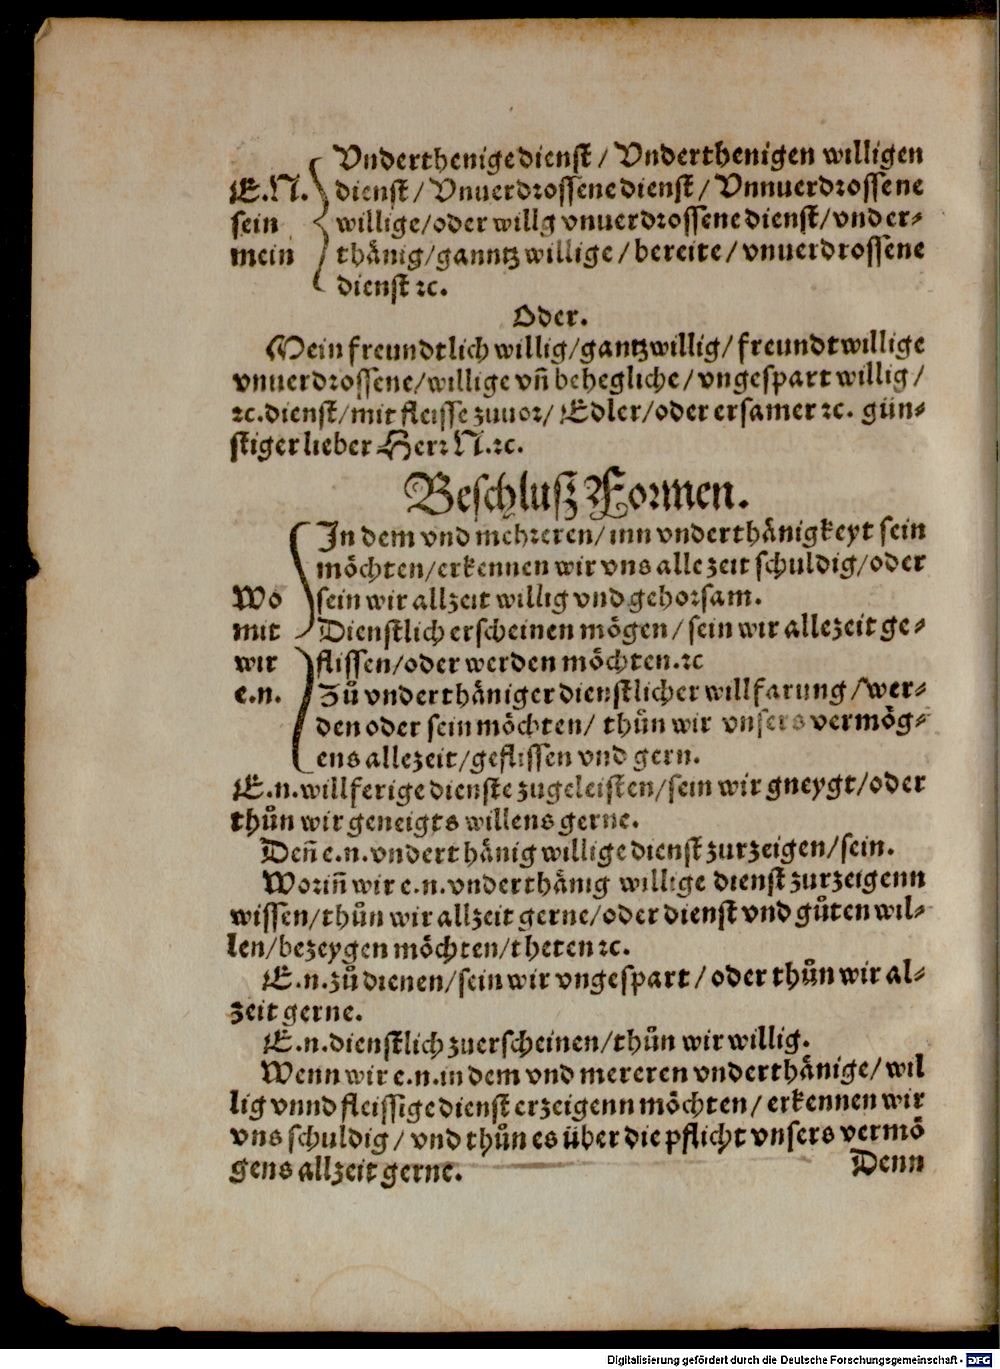 Vnderthenige dienst / Vnderthenigen willigen
E.N. dienst / Vnuerdrossene dienst / Vnnuerdrossene
sein willige/oder willg vnuerdrossene dienst/vnder-
mein thänig/ganntz willige / bereite / vnuerdrossene
dienst ꝛc.
Oder.
Mein freundtlich willig/gantzwillig/freundtwillige
vnuerdrossene/willige vn̄ behegliche/vngespart willig/
ꝛc.dienst/mit fleisse zuuor/ Edler/oder ersamer ꝛc. gün-
stiger lieber Herr N.ꝛc.
Beschlusz Formen.
In dem vnd mehreren/inn vnderthänigkeyt sein
möchten/erkennen wir vns alle zeit schuldig/oder
Wo sein wir allzeit willig vnd gehorsam.
mit Dienstlich erscheinen mögen/ sein wir allezeit ge-
wir flissen/oder werden möchten.ꝛc
e.n. Zů vnderthäniger dienstlicher willfarung/wer-
den oder sein möchten/ thůn wir vnsers vermög-
ens allezeit/geflissen vnd gern.
E.n.willferige dienste zugeleisten/sein wir gneygt/oder
thůn wir geneigts willens gerne.
Den̄ e.n.vnderthänig willige dienst zurzeigen/sein.
Worin̄ wir e.n.vnderthänig willige dienst zurzeigenn
wissen/thůn wir allzeit gerne/oder dienst vnd gůten wil-
len/bezeygen möchten/theten ꝛc.
E.n.zů dienen/sein wir vngespart/oder thůn wir al-
zeit gerne.
E.n.dienstlich zuerscheinen/thůn wir willig.
Wenn wir e.n.in dem vnd mereren vnderthänige/wil
lig vnnd fleissige dienst erzeigenn möchten/ erkennen wir
vns schuldig/ vnd thůn es über die pflicht vnsers vermö
gens allzeit gerne.
Denn
Digitalisierung gefördert durch die Deutsche Forschungsgemeinschaft - DFG